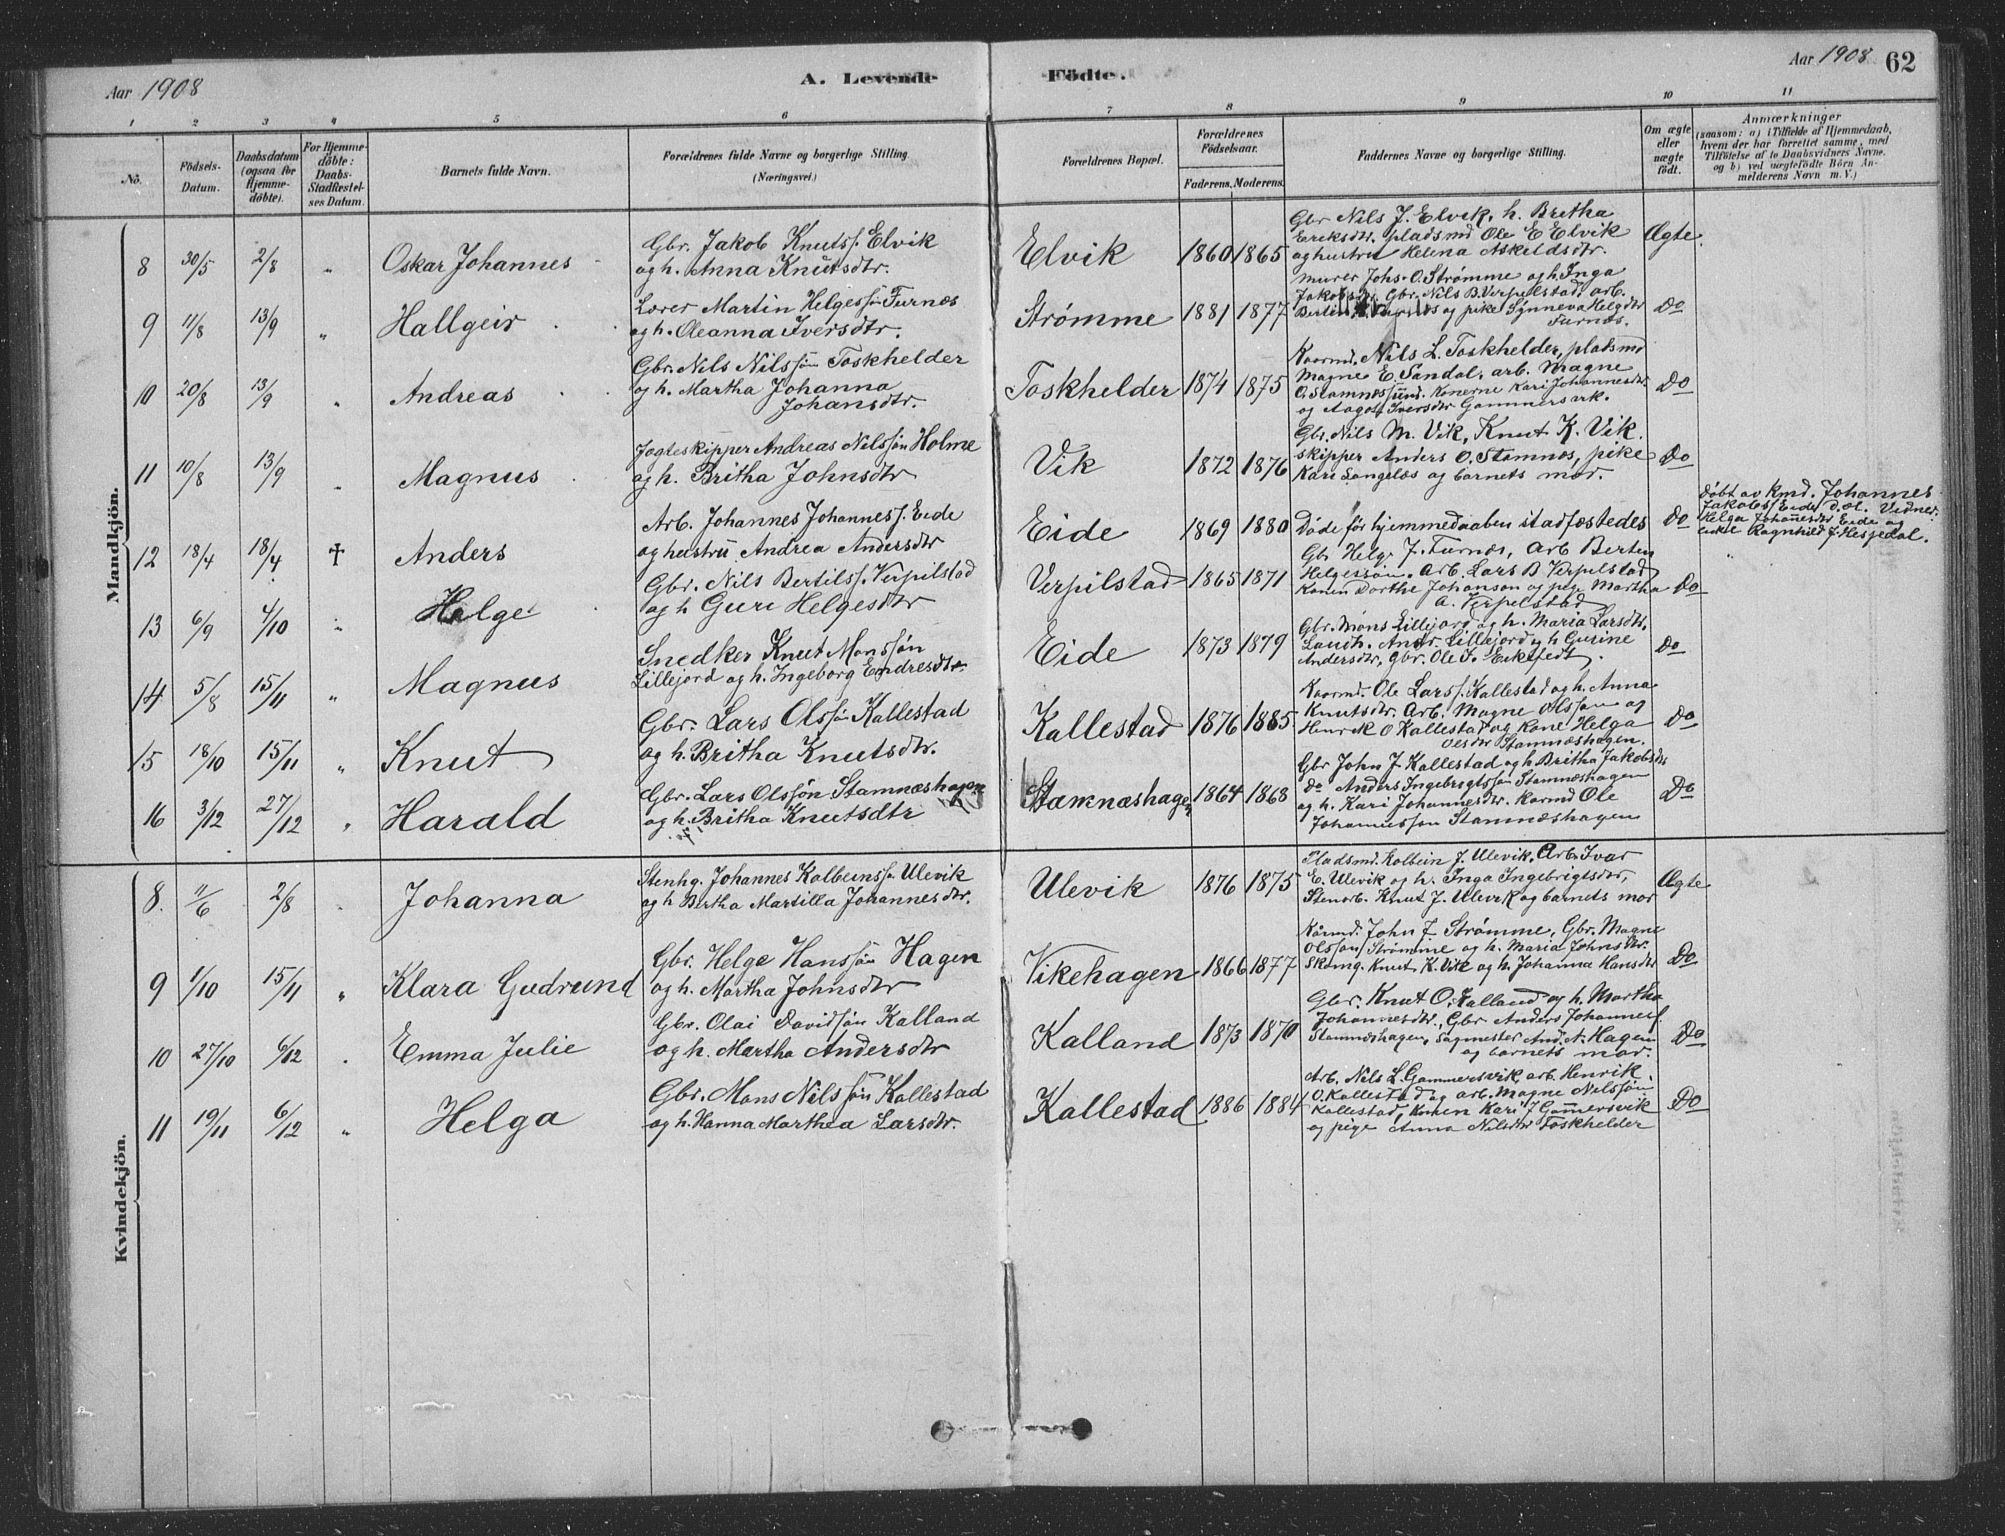 Aar 1908
A. Levende Födte.
Aar 1908 62
1 2 3 4 5 6 7 8 9 10 11
No.
Födsels-Datum.
Daabsdatum (ogsaa for Hjemme-döbte).
For Hjemme-döbte: Daabs-Stadfæstel-ses Datum.
Barnets fulde Navn.
Forældrenes fulde Navne og borgerlige Stilling (Næringsvei.)
Forældrenes Bopæl.
Forældrenes Födselsaar.
Faderens. Moderens.
Faddernes Navne og borgerlige Stilling.
Om ægte eller uægte födt.
Anmærkninger
(saasom: a) i Tilfælde af Hjemmedaab, hvem der har forrettet samme, med Tilföielse af to Daabsvidners Navne. og b) ved uægtefödte Börn An-melderens Navn m. V.)
Mandkjön.
8 30/5 2/8 " Oskar Johannes
Gbr. Jakob Knuts. Elvik
og h. Anna Knutsdtr.
Elvik 1860 1865
Gbr Nils J. Elvik, h. Bretha
Eriksdtr. pladsmd Ole E Elvik
og hustru Helena Askeldsdtr.
Ægte
9 11/8 13/9 " Hallgeir
Lærer Martin Helgessøn Furnes
og h. Oleanna Iversdtr.
Strømme 1881 1877
Murer Johs. O. Strømme og h. Inga
Jakobsdtr. Gbr. Nils B. Verpelstad, arb.
og pike Synneva Helgdtr
Furnæs.
Do
10 20/8 13/9 " Andreas
Gbr. Nils Nilssøn Toskhelder
og h. Martha Johanna
Johansdtr.
Toskhelder 1874 1875
Kaarmd. Nils L. Toskhelder, pladsmd
Magne E Sandal, arb. Magne
O. Stamnessund. Konerne Kari Johannesdtr
og Aagot Iversdtr Gammersvik.
Do
11 10/8 13/9 " Magnus
Jagteskipper Andreas Nilssøn Holme
og h. Britha Johnsdtr
Vik 1872 1876
Gbr. Nils M. Vik, Knut K. Vik.
skipper Anders O. Stamnæs, pike
Kari Langelæs og barnets mor.
Do
12 18/4 18/4 † Anders
Arb. Johannes Johannes. Eide
og hustru Andrea Andersdtr
Eide 1869 1880
Døde før hjemmedaaben stadfæstedes
Do
Døbt av Kmd. Johannes
Jakobs Eide d.æ. Vidner:
Helga Johannesdtr Eide og
enke Ragnhild J. Hesjedal.
13 6/9 4/10 " Helge
Gbr. Nils Bertils. Verpilstad
og h Guri Helgesdtr
Verpilstad 1865 1871
Gbr Helge J. Furnæs, Arb Berten
Helgessøn. Arb. Lars B Verpelstad
Konen Dorthe Johanson og pige Martha
A. Verpelstad
Do
14 5/8 15/11 " Magnus
Snedker Knut Monssøn
Lillejord og h. Ingeborg Endresdtr
Eide 1873 1879
Gbr. Mons Lillejord og h. Maria Larsdtr.
Andr. Lillejord og h Gurine
Andersdtr, Gbr. Ole J.
Do
15 18/10 15/11 " Knut
Gbr. Lars Olssøn Kallestad
og h. Britha Knutsdtr.
Kallestad 1876 1885
Kaarmd. Ole Lars. Kallestad og h. Anna
Knutsdtr. Arb. Magne Olsson og
Henrik O Kallestad og kone Helga
Olsdtr Stamnæshagen.
Do
16 3/12 27/12 " Harald
Gbr. Lars Olssøn Stamnæshagen
og h. Britha Knutsdtr
Stamnæshagen 1864 1868
Gbr John J Kallestad og h Britha Jakobsdtr
Do Anders Ingebrigtssøn Stamnæshagen
og h. Kari Johannesdtr. Kaarmd Ole
Johannessøn Stamnæshagen
Do
Kvindekjön.
8. 11/6 2/8 Johanna
Stenhg. Johannes Kolbeinss. Ulevik
og h Bertha Martilla Johannesdtr.
Ulevik 1876 1875
Pladsmd. Kolbein J. Ulevik. Arb. Ivar
E. Ulevik og h. Inga Ingebrigtsdtr,
Stenarb. Knut J. Ulevik og barnets mor
Ægte
9 1/10 15/11 " Klara Gudrund
Gbr. Helge Hanssøn Hagen
og h. Martha Johnsdtr
Vikehagen 1866 1877
Kårmd. John J Strømme, Gbr. Magne
Olsson Strømme og h. Maria Johnsdtr.
Skomg. Knut K. Vik og h. Johanna Hansdtr
Do
10 27/10 6/12 . Emma Julie
Gbr. Olai Davidsøn Kalland
og h. Martha Andersdtr
Kalland 1873 1870
Gbr. Knut O. Kalland og h. Martha
Johannesdtr., Gbr Anders Johanness.
Stamneshagen, Sagmester And. N. Hagen
og barnets mor.
Do
11 19/11 6/12 " Helga
Gbr. Mons Nilssøn Kallestad
og h. Hanna Marthea Larsdtr.
Kallestad 1886 1884
Arb. Nils L. Gammersvik, arb. Henrik
O. Kallestad og arb. Magne Nilssøn
Kallestad, Konen Kari J Gammersvik
og pige Anna Nilsdtr Toskhelder
Do